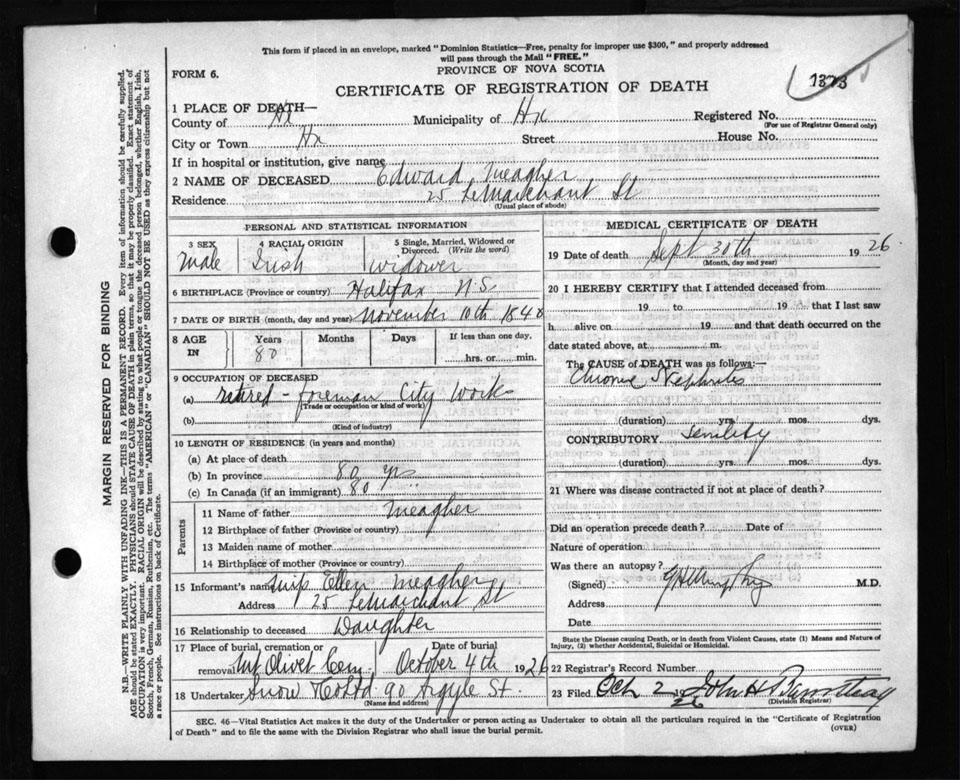 This form if placed in an envelope, marked "Dominion Statistics—Free, penalty for improper use $300," and properly addressed
will pass through the Mail "FREE."
FORM 6.
PROVINCE OF NOVA SCOTIA
1373
CERTIFICATE OF REGISTRATION OF DEATH
1 PLACE OF DEATH—
County of Hx Municipality of Hx Registered No.
(For use of Registrar General only)
City or Town Hx Street House No.
If in hospital or institution, give name
2 NAME OF DECEASED Edward Meagher
Residence 25 LeMarchant St
(Usual place of abode)
PERSONAL AND STATISTICAL INFORMATION
3 SEX 4 RACIAL ORIGIN 5 Single, Married, Widowed or Divorced. (Write the word)
Male Irish Widower
6 BIRTHPLACE (Province or country) Halifax N.S.
7 DATE OF BIRTH (month, day and year) November 10th 1840
8 AGE IN Years Months Days If less than one day,
80 hrs. or min.
9 OCCUPATION OF DECEASED
(a) retired - foreman City Work
(Trade or occupation or kind of work)
(b)
(Kind of industry)
10 LENGTH OF RESIDENCE (in years and months)
(a) At place of death
(b) In province 80 yrs
(c) In Canada (if an immigrant) 80
Parents
11 Name of father Meagher
12 Birthplace of father (Province or country)
13 Maiden name of mother
14 Birthplace of mother (Province or country)
15 Informant's name Miss Ellen Meagher
Address 25 LeMarchant St
16 Relationship to deceased Daughter
17 Place of burial, cremation or removal Date of burial
Mt Olivet Cem. October 4th 1926
18 Undertaker Snow & Co Ltd 90 Argyle St.
(Name and address)
MEDICAL CERTIFICATE OF DEATH
19 Date of death Sept 30th 1926.
(Month, day and year)
20 I HEREBY CERTIFY that I attended deceased from
19 to 19 that I last saw
h alive on 19 and that death occurred on the
date stated above, at m.
The CAUSE OF DEATH was as follows:—
Chronic Nephritis
(duration) yrs. mos. dys.
CONTRIBUTORY Senility
(duration) yrs. mos. dys.
21 Where was disease contracted if not at place of death?
Did an operation precede death? Date of
Nature of operation
Was there an autopsy?
(Signed) M.D.
Address
Date
State the Disease causing Death, or in death from Violent Causes, state (1) Means and Nature of
Injury, (2) whether Accidental, Suicidal or Homicidal.
22 Registrar's Record Number
23 Filed Oct 2 1926 John H Barnstead
(Division Registrar)
SEC. 46—Vital Statistics Act makes it the duty of the Undertaker or person acting as Undertaker to obtain all the particulars required in the "Certificate of Registration
of Death" and to file the same with the Division Registrar who shall issue the burial permit.
(OVER)
MARGIN RESERVED FOR BINDING
N.B.—WRITE PLAINLY, WITH UNFADING INK—THIS IS A PERMANENT RECORD. Every item of information should be carefully supplied.
AGE should be stated EXACTLY. PHYSICIANS should STATE CAUSE OF DEATH in plain terms, so that it may be properly classified. Exact statement of
OCCUPATION is very important. RACIAL ORIGIN will be described by stating to what people or tongue the deceased person belonged, whether English, Irish,
Scotch, French, German, Russian, Ruthenian, etc. The terms "AMERICAN" or "CANADIAN" SHOULD NOT BE USED as they express citizenship but not
a race or people. See instructions on back of Certificate.